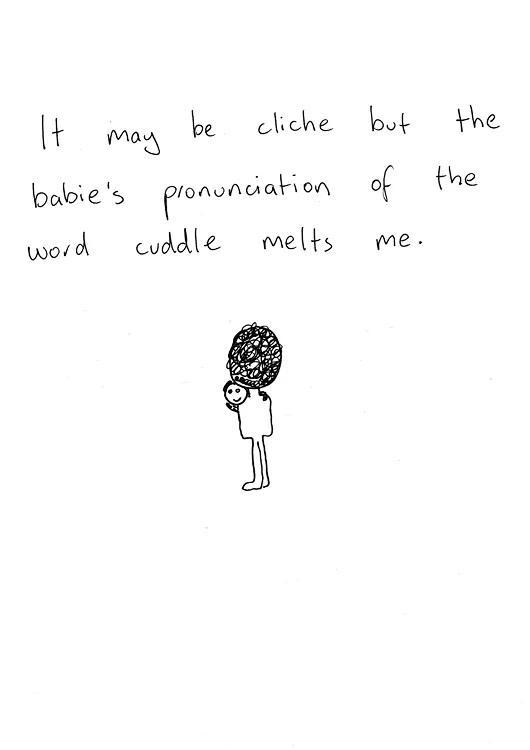 It may be cliche but the
babie's pronunciation of the
word cuddle melts me.